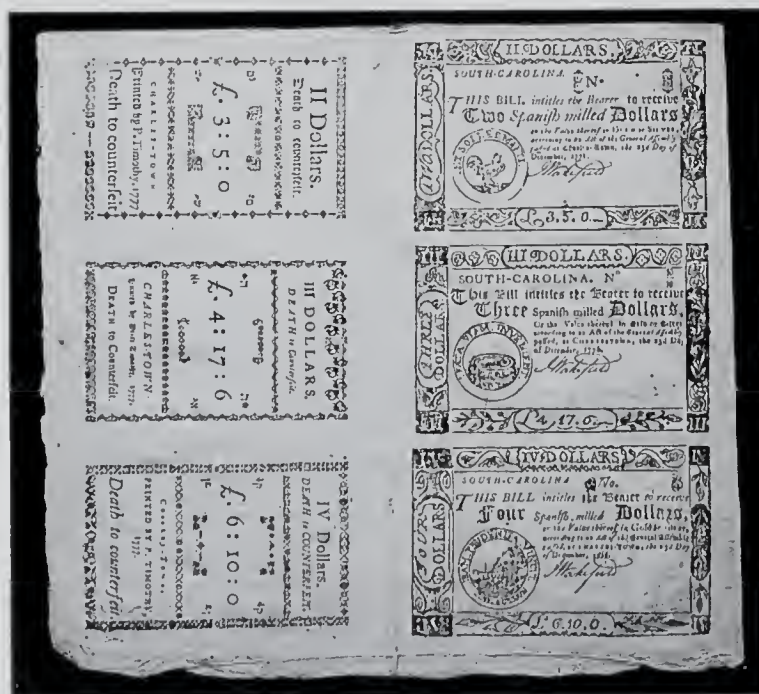 II Dollars.
Death to counterfeit.
£. 3 : 5 : 0
CHARLESTOWN
Printed by P. Timothy, 1777
Death to counterfeit
III DOLLARS.
DEATH to Counterfeit.
£. 4 : 17 : 6
CHARLESTOWN
1777.
DEATH to Counterfeit.
IV Dollars.
DEATH to COUNTERFEIT.
£. 6 : 10 : 0
PRINTED BY P. TIMOTHY,
1777.
Death to counterfeit
II DOLLARS.
TWO DOLLARS
SOUTH-CAROLINA. No
THIS BILL intitles the Bearer to receive
Two Spanish milled Dollars
according to an Act of the General Assembly
passed at Charles-Town, the 23d Day of
December, 1776.
£. 3. 5. 0.
III DOLLARS.
THREE DOLLARS
SOUTH-CAROLINA. No
This Bill intitles the Bearer to receive
Three Spanish milled Dollars,
Or the Value thereof in Gold or Silver
according to an Act of the General Assembly
passed, at CHARLESTOWN, the 23d Day
of December, 1776.
£4. 17. 6.
IV DOLLARS
FOUR DOLLARS
SOUTH-CAROLINA No.
THIS BILL intitles the Bearer to receive
Four Spanish milled Dollars,
or the Value thereof in Gold or Silver,
according to an Act of the General Assembly
passed at CHARLES-TOWN, the 23d Day
of December, 1776.
£. 6. 10. 0.